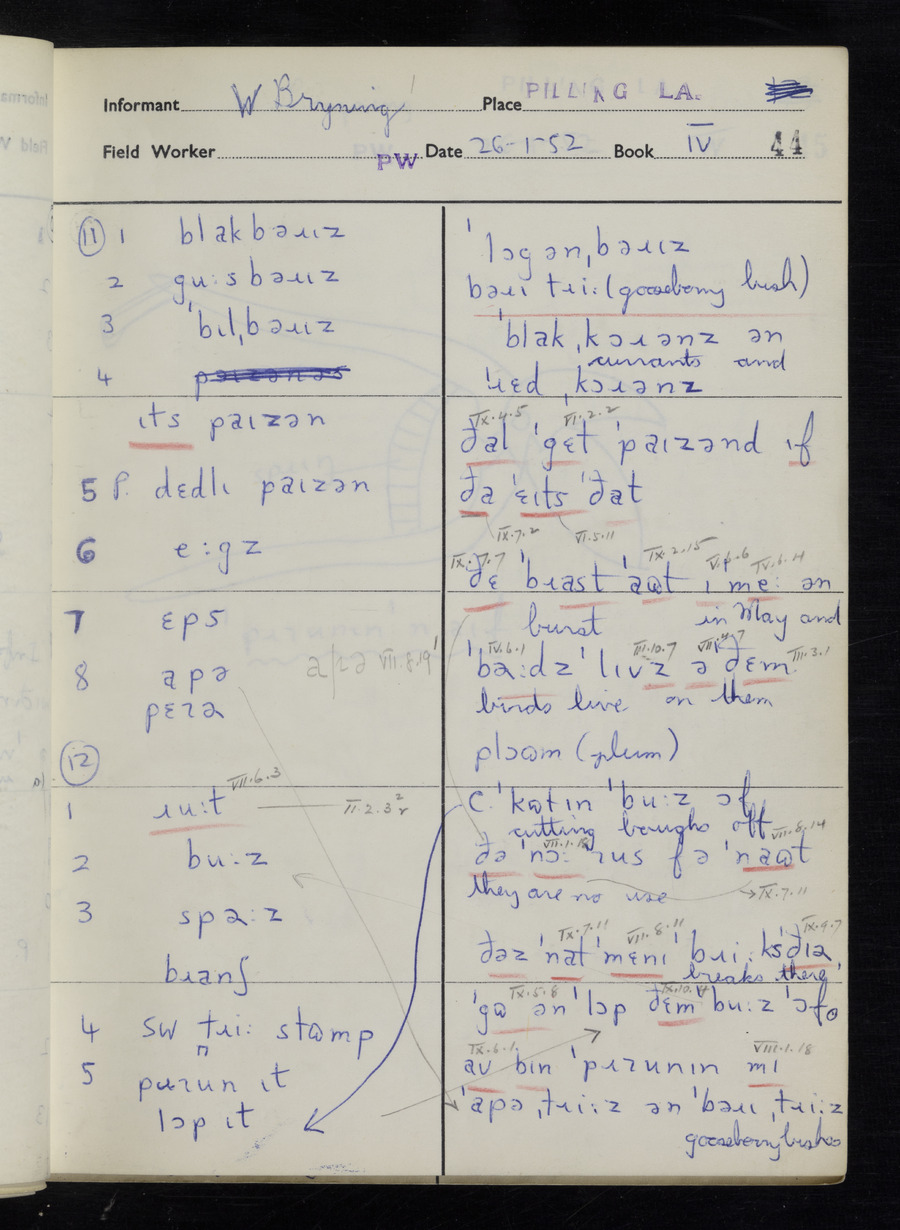 Informant W Bryning Place PILLING LA.
Field Worker PW Date 26-1-52 Book IV 44
(11) 1 blakbəɹɪz
2 gu:sbəɹɪz
3 ˈbɪlˌbəɹɪz
4
ɪts paɪzən
5 P. dɛdlɪ paɪzən
6 e:gz
7 ɛps
8 apə apə VII.8.19
pɛɹə
(12)
1 ɹu:t VII.6.3 II.2.3
2 bu:z
3 spə:z
bɹanʃ
4 SW tɹi: stɷmp
5 pɹɪun ɪt
lɔp ɪt
ˈlɔgənˌbəɹɪz
bəɹɪ tɹi: (gooseberry bush)
ˈblakˌkɔɹənz ən
currants and
ˈɹɛdˌkɔɹənz
IX.4.5 VI.2.2
ðal ˈgɛt ˈpaɪzənd ɪf
ða ˈɛɪts ˈðat
IX.7.2 VI.5.11
IX.7.7 IX.2.15 V.6.6 IV.6.4
ðɛ ˈbɹast ˈaɷt ɪ ˈme: ən
burst in May and
IV.6.1 III.10.7 VII.4.7 III.3.1
ˈbə:dz ˈlɪvz ə ðɛm
birds live on them
plɔɷm (plum)
C. ˈkɷtɪn ˈbu:z ɔf
cutting boughs off
VII.1.18 VII.8.14
ðə ˈnɔ: ˈɹus fə ˈnaɷt
they are no use → IX.7.11
IX.7.11 VII.8.11 IX.9.7
ðəz ˈnat ˈmɛnɪ ˈbɹi:ks ˈðɪə
breaks there
IX.5.8 IX.10.4
ˈgɷ ən ˈlɔp ðɛm bu:z ˈɔfə
IX.6.1 VIII.1.18
av bin ˈpɹɪunɪn mɪ
ˈapəˌtɹi:z ən ˈbəɹɪˌtɹi:z
gooseberry bushes